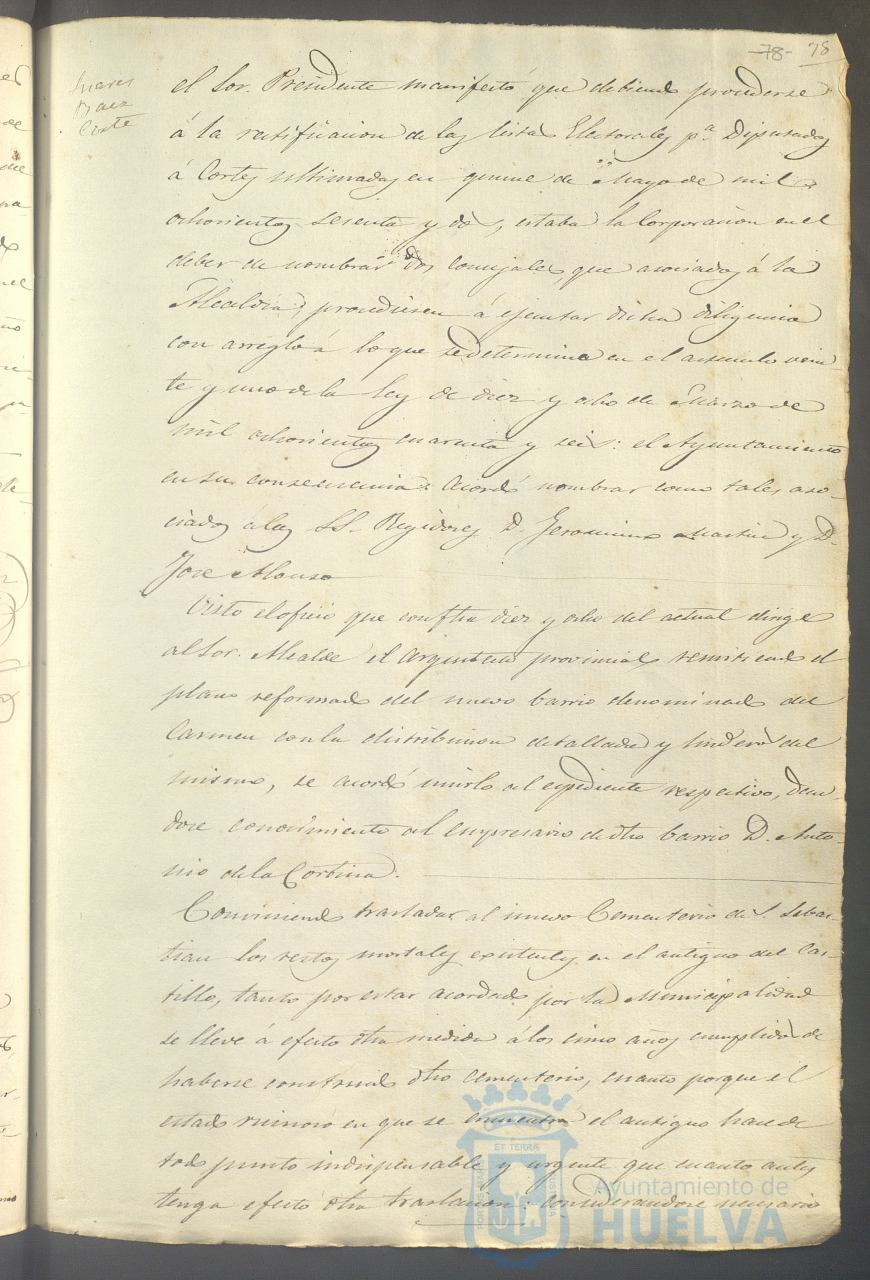 -78- 78
Suarez
Baez
Corte
el Sor. Presidente manifestó que debiendo procederse
á la rectificacion de las listas Electorales pa. Diputados
á Cortes ultimadas en quince de Mayo de mil
ochocientos sesenta y dos, estaba la Corporacion en el
deber de nombrar dos Concejales, que asociados á la
Alcaldia, procediesen á ejecutar dicha diligencia
con arreglo á lo que se determina en el articulo vein-
te y uno de la ley de diez y ocho de Marzo de
mil ochocientos cuarenta y seis: el Ayuntamiento
en su consecuencia acordó nombrar como tales aso-
ciados á los SS. Regidores D. Jeronimo Martin y D.
Jose Alonso
Visto el oficio que con fha diez y ocho del actual dirige
al Sor. Alcalde el Arquitecto provincial, remitiendo el
plano reformado del nuevo barrio denominado del
Carmen con la distribucion detallada y linderos del
mismo, se acordó unirlo al espediente respectivo, dan-
dose conocimiento al empresario de dho barrio D. Anto-
nio de la Cortina.
Conviniendo trasladar al nuevo Cementerio de S. Sebas-
tian los restos mortales existentes en el antiguo del Cas-
tillo, tanto por estar acordado por la Municipalidad
se lleve á efecto dha medida á los cinco años cumplidos de
haberse construido dho cementerio, cuanto porque el
estado ruinoso en que se encuentra el antiguo hace de
todo punto indispensable y urgente que cuanto antes
tenga efecto dha traslacion: considerandose necesario
ET TERRA
Ayuntamiento de
HUELVA